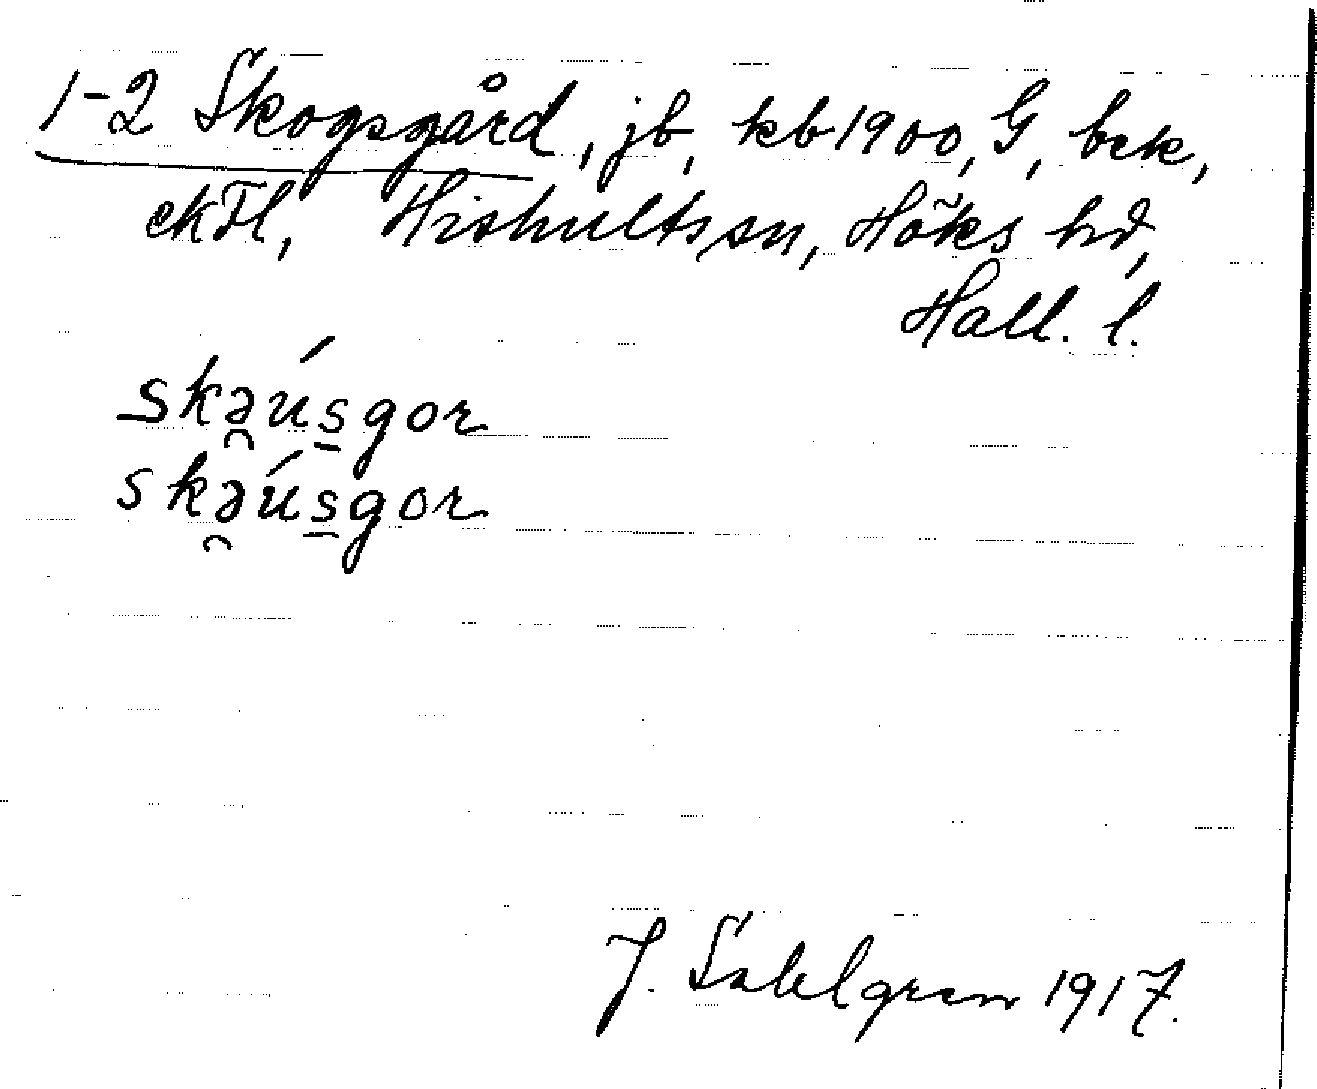 1-2 Skogsgård, jb, kb 1900, G, bek,
ekHl, Hishults sn, Höks hd,
Hall. l.
skə̯ús̲gor
skə̯ús̲gor
J. Sahlgren 1917.